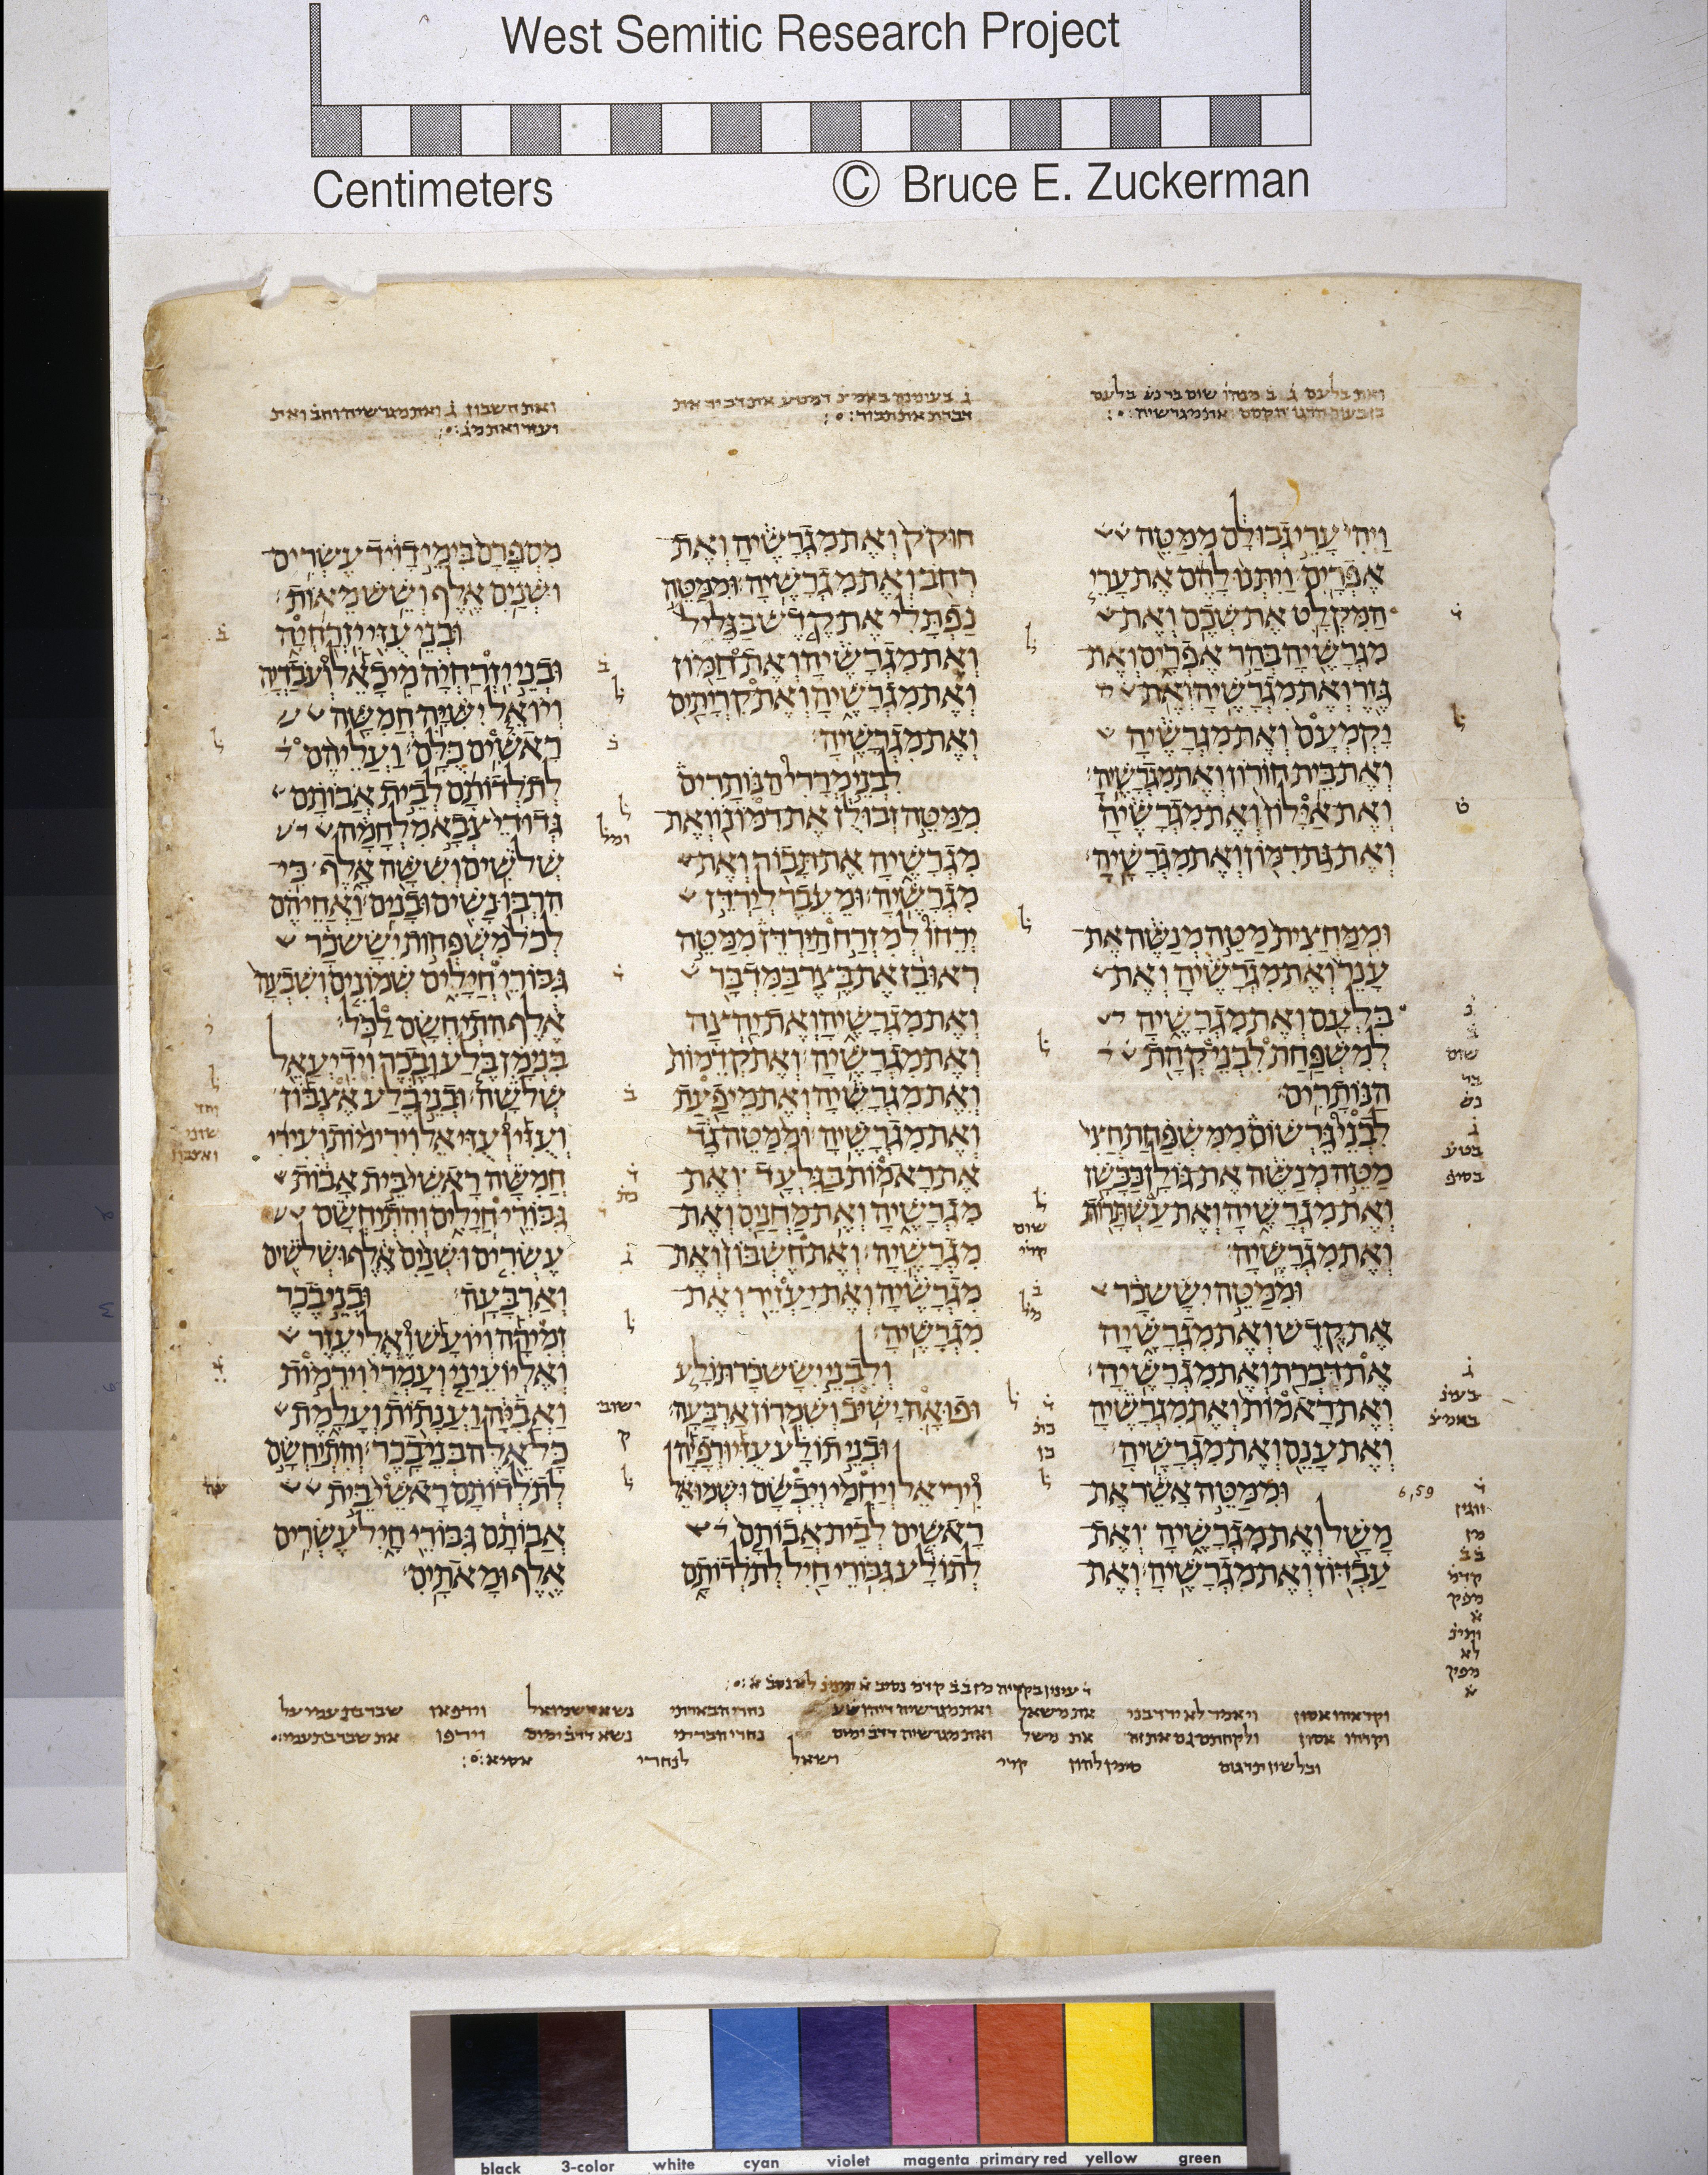 West Semitic Research Project
Centimeters © Bruce E. Zuckerman
ואת בלעם ג ב מנהו שום ברנש בלעם
ואת מגרשיה
ויהי ערי גבולם ממטה
אפרים ויתנו להם את ערי
המקלט את שכם ואת
מגרשיה בהר אפרים ואת
גזר ואת מגרשיה ואת
יקמעם ואת מגרשיה
ואת בית חורון ואת מגרשיה
ואת אילון ואת מגרשיה
ואת גת רמון ואת מגרשיה
וממחצית מטה מנשה את
ענר ואת מגרשיה ואת
בלעם ואת מגרשיה
למשפחת לבני קהת
הנותרים
לבני גרשום ממשפחת חצי
מטה מנשה את גולן בבשן
ואת מגרשיה ואת עשתרות
ואת מגרשיה
וממטה יששכר
את קדש ואת מגרשיה
את דברת ואת מגרשיה
ואת ראמות ואת מגרשיה
ואת ענם ואת מגרשיה
וממטה אשר את
משל ואת מגרשיה ואת
עבדון ואת מגרשיה ואת
6,59
את דביר את
דברת את תבור
חוקק ואת מגרשיה ואת
רחב ואת מגרשיה וממטה
נפתלי את קדש בגליל
ואת מגרשיה ואת חמון
ואת מגרשיה ואת קריתים
ואת מגרשיה
לבני מררי הנותרים
ממטה זבולן את רמונו ואת
מגרשיה את תבור ואת
מגרשיה ומעבר לירדן
ירחו למזרח הירדן ממטה
ראובן את בצר במדבר
ואת מגרשיה ואת יהצה
ואת מגרשיה ואת קדמות
ואת מגרשיה ואת מיפעת
ואת מגרשיה וממטה גד
את ראמות בגלעד ואת
מגרשיה ואת מחנים ואת
מגרשיה ואת חשבון ואת
מגרשיה ואת יעזיר ואת
מגרשיה
ולבני יששכר תולע
ופואה ישיב ושמרון ארבעה
ובני תולע עזי ורפיה
ויריאל ויחמי ויבשם ושמואל
ראשים לבית אבותם
לתולע גבורי חיל לתלדותם
ואת חשבון ג ואת מגרשיה
ואת
מספרם בימי דויד עשרים
ושנים אלף ושש מאות
ובני עזי יזרחיה
ובני יזרחיה מיכאל ועבדיה
ויואל ישיה חמשה
ראשים כלם ועליהם
לתלדותם לבית אבותם
גדודי צבא מלחמה
שלשים וששה אלף כי
הרבו נשים ובנים ואחיהם
לכל משפחות יששכר
גבורי חילים שמונים ושבעה
אלף התיחשם לכל
בנימן בלע ובכר וידיעאל
שלשה ובני בלע אצבון
ועזי ועזיאל וירימות ועירי
חמשה ראשי בית אבות
גבורי חילים והתיחשם
עשרים ושנים אלף ושלשים
וארבעה ובני בכר
זמירה ויועש ואליעזר
ואליועיני ועמרי וירמות
ואביה וענתות ועלמת
כל אלה בני בכר והתיחשם
לתלדותם ראשי בית
אבותם גבורי חיל עשרים
אלף ומאתים
black 3-color white cyan violet magenta primary red yellow green